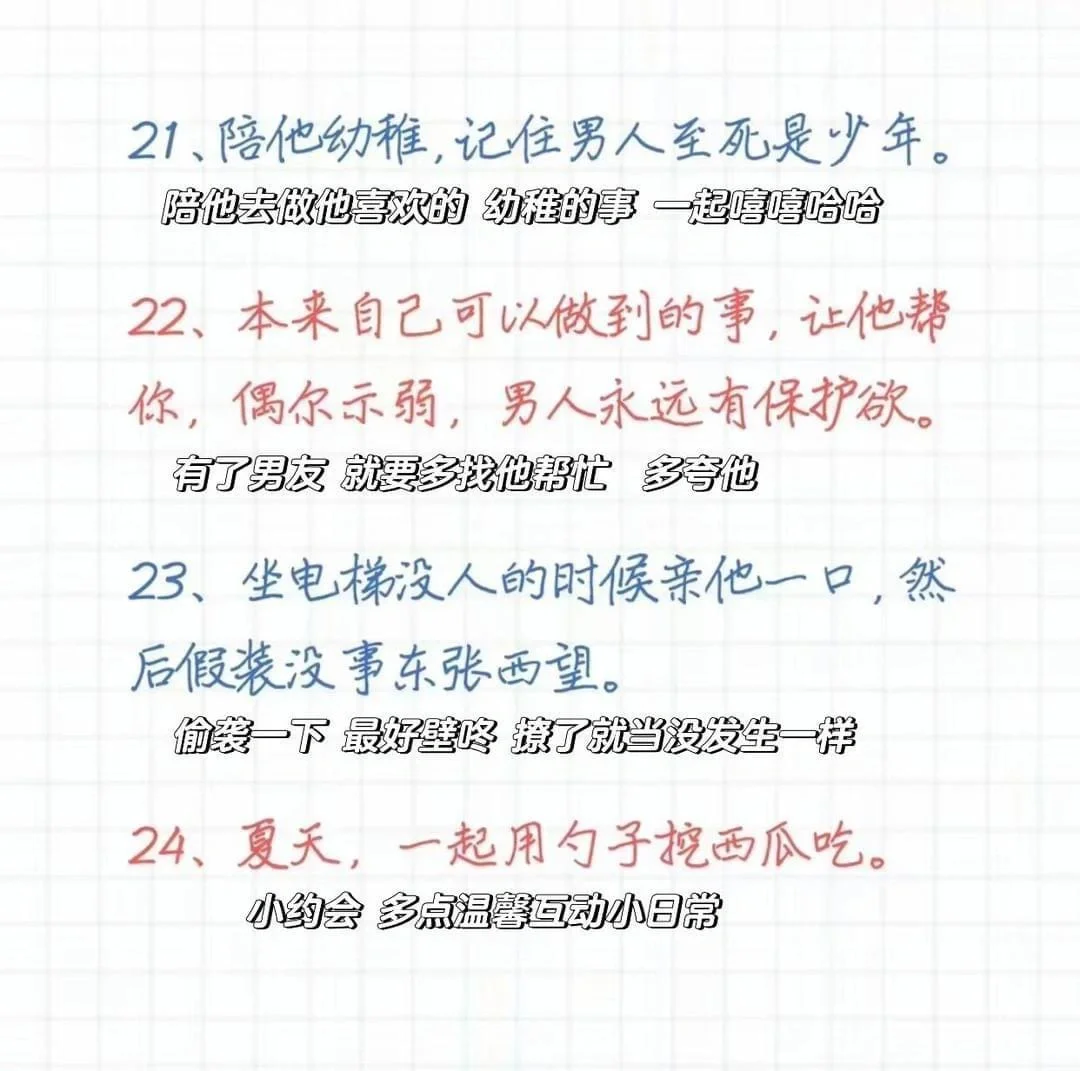 21、陪他幼稚,记住男人至死是少年。
陪他去做他喜欢的 幼稚的事 一起嘻嘻哈哈
22、本来自己可以做到的事,让他帮
你,偶尔示弱,男人永远有保护欲。
有了男友 就要多找他帮忙 多夸他
23、坐电梯没人的时候亲他一口,然
后假装没事东张西望。
偷袭一下 最好壁咚 撩了就当没发生一样
24、夏天,一起用勺子挖西瓜吃。
小约会 多点温馨互动小日常